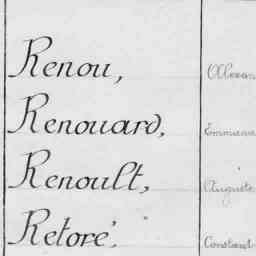 Renou, Alexan
Renouard, Emmanu
Renoult, Auguste
Retoré. Constant